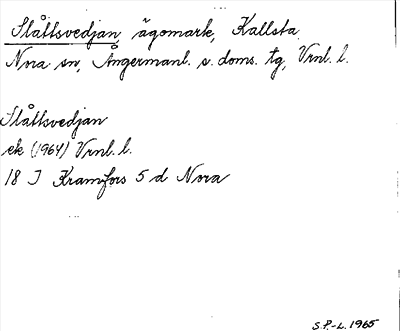 Slåttsvedjan, ägomark, Kallsta
Nora sn, Ångermanl. s. doms. tg, Vrnl. l.
Slåttsvedjan
ek (1964) Vrnl. l.
18 I Kramfors 5 d Nora
S.P.-L. 1965